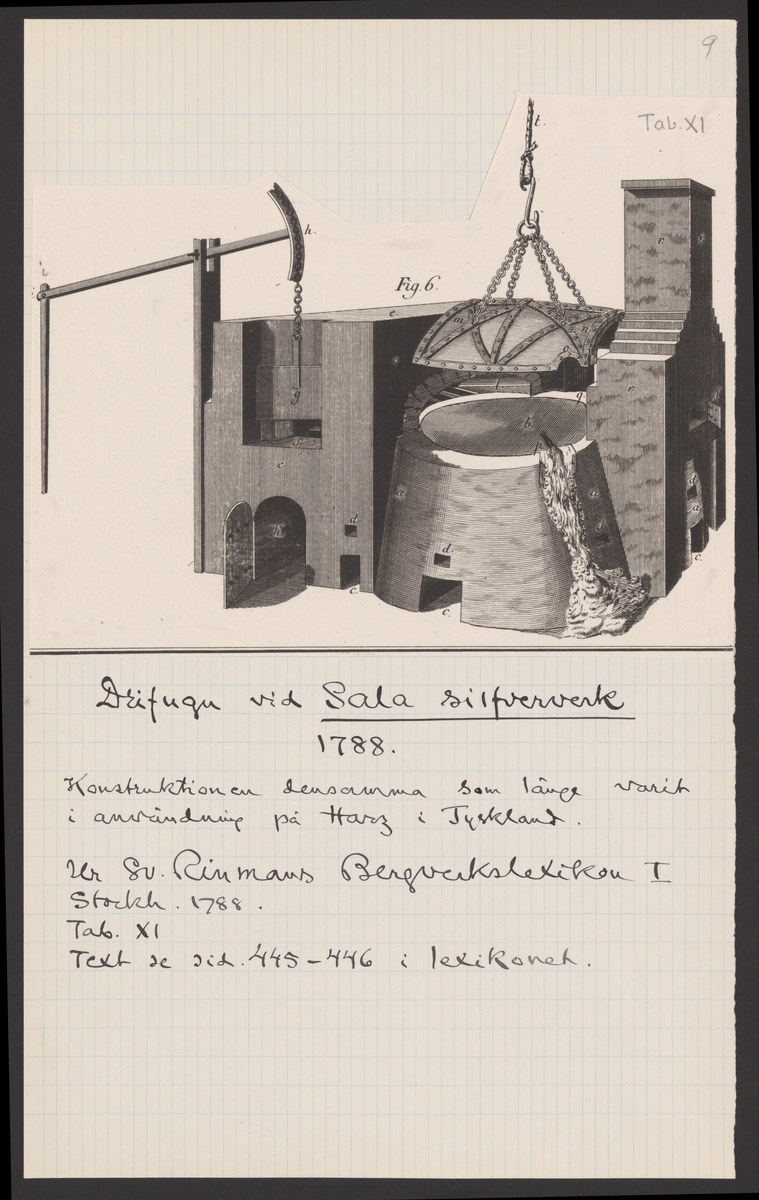 9
Tab. XI
t.
h.
i
Fig. 6.
e.
m
n
o
r
g
l
q
b.
p
f
e
r
a
a
k
d.
d.
d
d
a
c.
c.
c.
Drifugn vid Sala silfververk
1788.
Konstruktionen densamma som länge varit
i användning på Harz i Tyskland.
Ur Sv. Rinmans Bergverkslexikon I
Stockh. 1788.
Tab. XI
Text se sid. 445-446 i lexikonet.